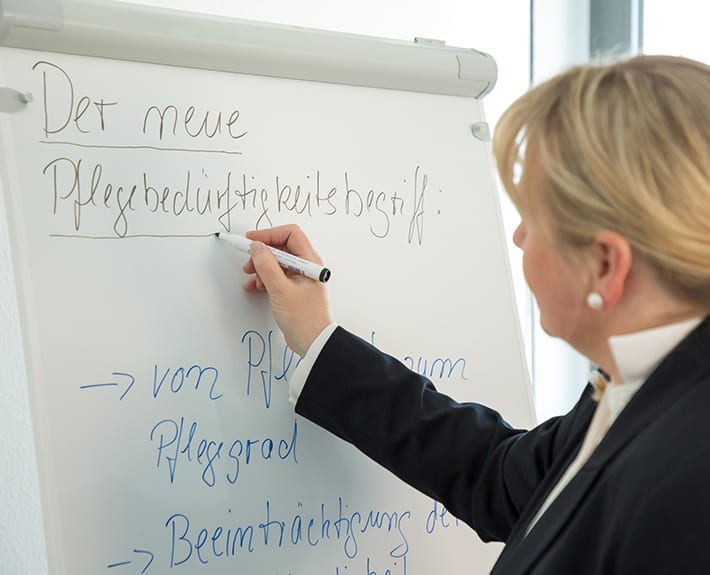 Der neue
Pflegebedürftigkeitsbegriff:
→ von zum
Pflegegrad
→ Beeinträchtigung